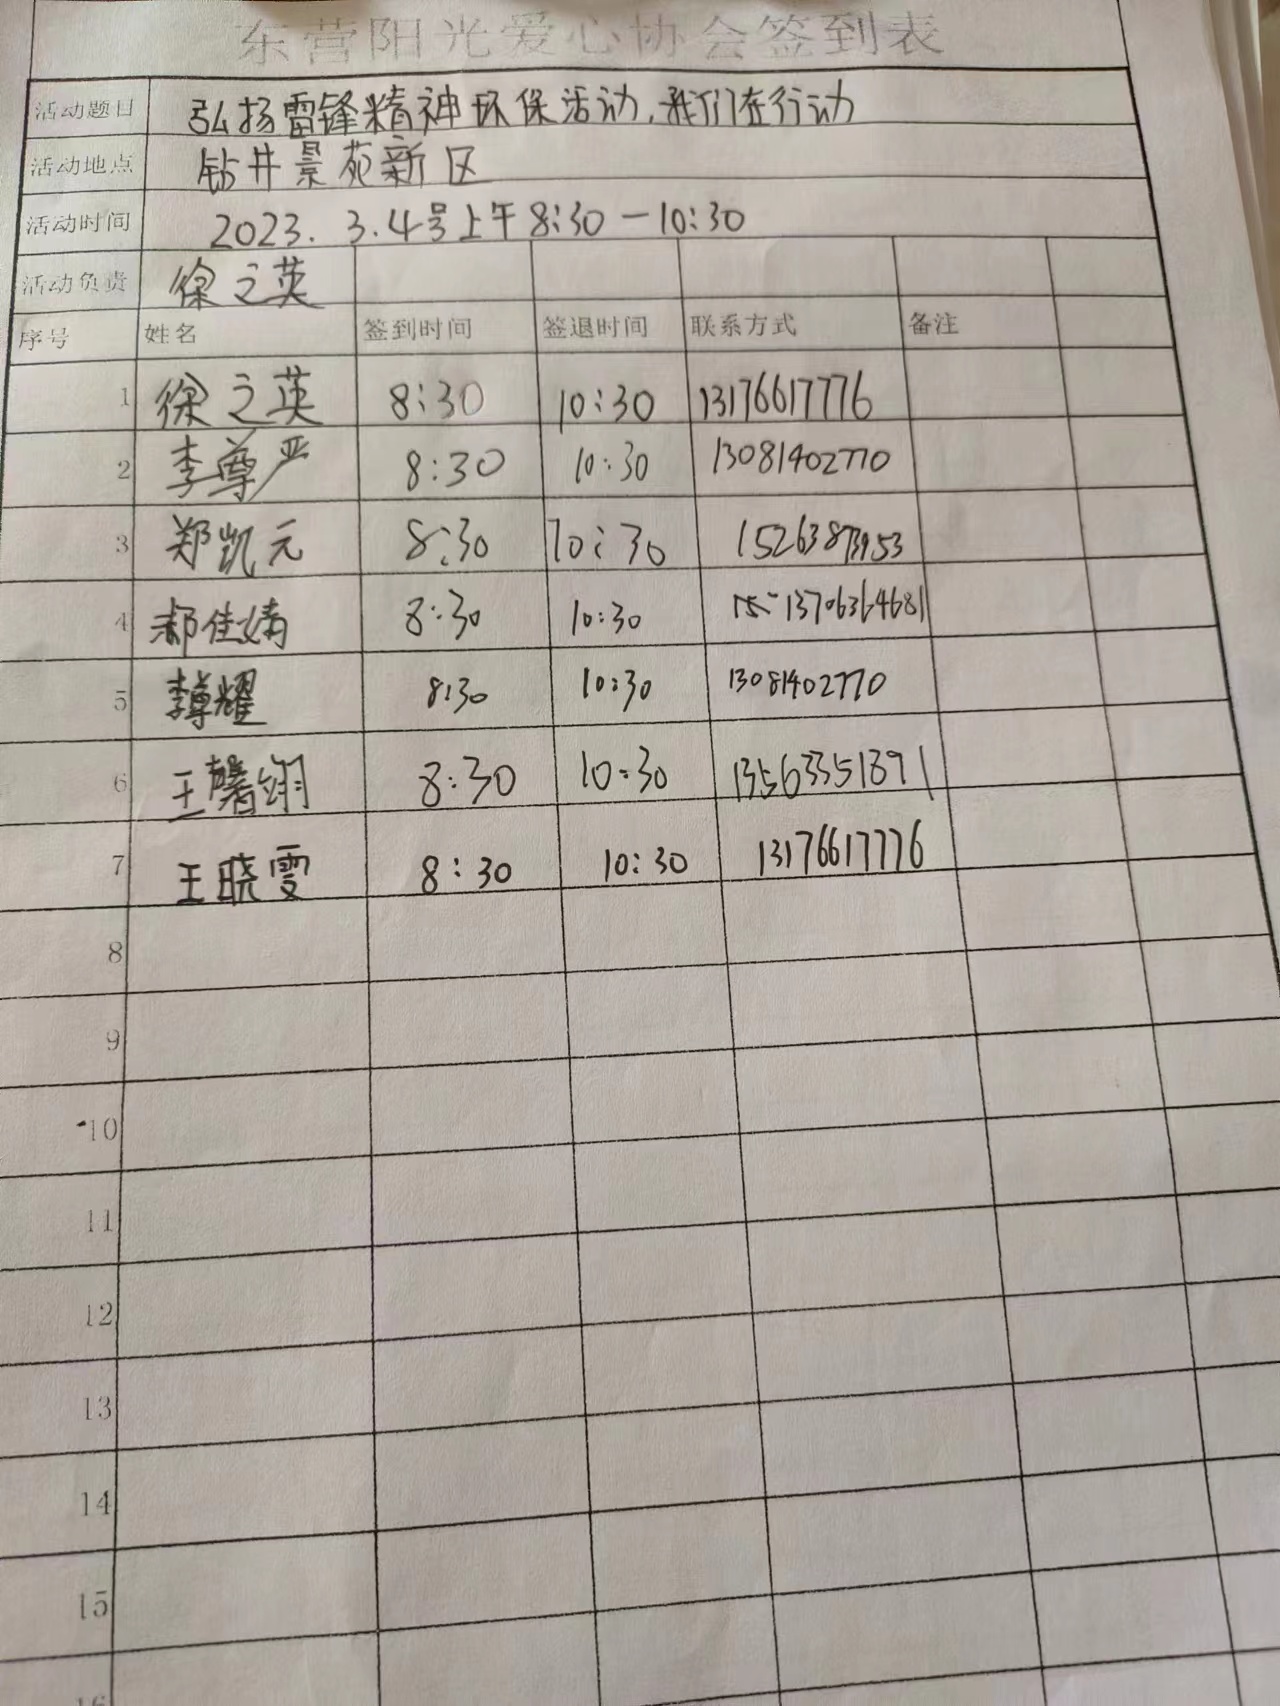 东营阳光爱心协会签到表
活动题目 弘扬雷锋精神环保活动,我们在行动
活动地点 钻井景苑新区
活动时间 2023.3.4号上午8:30—10:30
活动负责 徐之英
序号 姓名 签到时间 签退时间 联系方式 备注
1 徐之英 8:30 10:30 13176617776
2 李尊严 8:30 10:30 13081402770
3 郑凯元 8:30 10:30 15263873953
4 郝佳婧 8:30 10:30 13706364681
5 李尊耀 8:30 10:30 13081402770
6 王馨翊 8:30 10:30 13563351391
7 王晓雯 8:30 10:30 13176617776
8
9
10
11
12
13
14
15
16